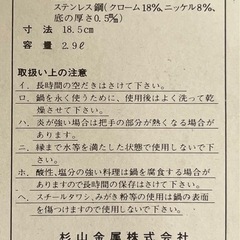 ステンレス鋼(クローム18%、ニッケル8%、
底の厚さ0.5%)
寸法 18.5cm
容量 2.9ℓ
取扱い上の注意
イ、長時間の空だきはさけて下さい。
ロ、鍋を永く使うために、使用後はよく洗って乾
燥させて下さい。
ハ、炎が強い場合は把手の部分が熱くなる場合が
あります。
ニ、縁まで水等を満たした状態で使用しないで下
さい。
ホ、酸性、塩分の強い料理は鍋を腐食する場合が
ありますので長時間の保存はさけて下さい。
ヘ、スチールタワシ、みがき粉等の使用は鍋の表面
を傷つけますので使用しないで下さい。
杉山金属株式会社